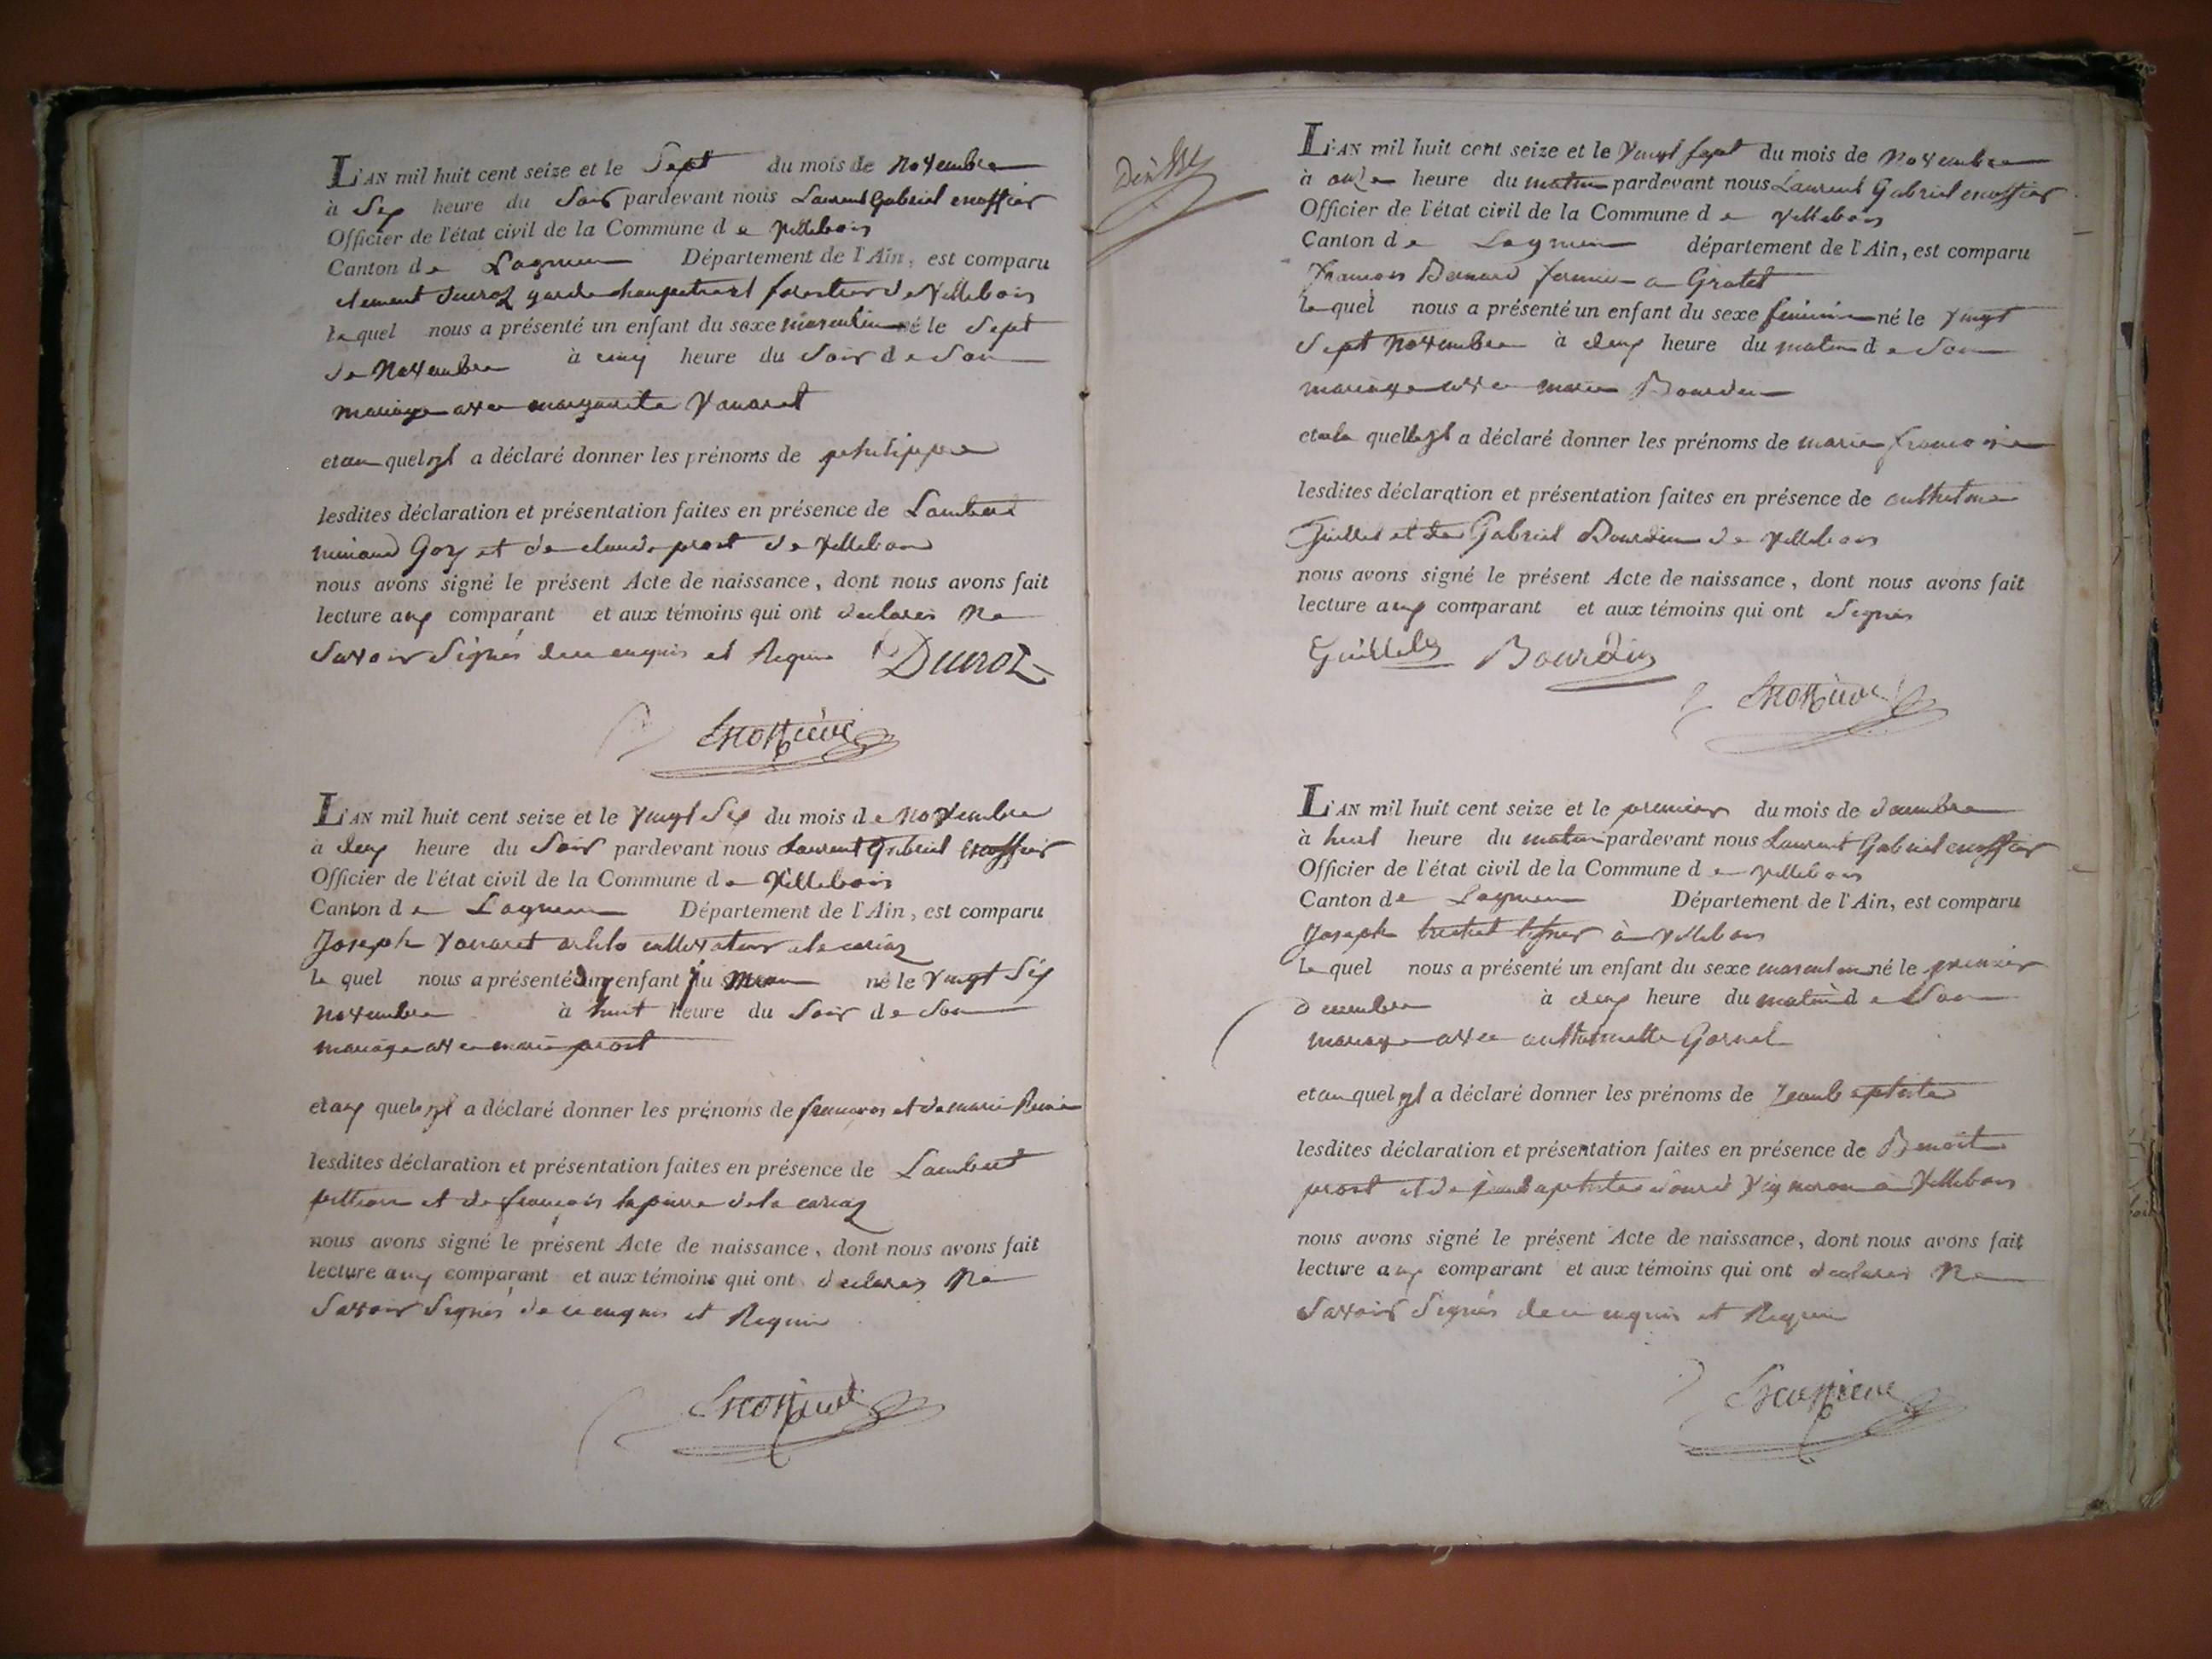 L'AN mil huit cent seize et le Sept du mois de Novembre
à Six heure du Soir pardevant nous Laurent Gabriel escoffier
Officier de l'état civil de la Commune de Villebois
Canton de Lagnieu Département de l'Ain, est comparu
clement ducroz garde champetre et forestier de Villebois
lequel nous a présenté un enfant du sexe masculin né le Sept
de Novembre à cinq heure du Soir de Son
mariage avec marguerite Vanaret
et au quel yl a déclaré donner les prénoms de philippe
lesdites déclaration et présentation faites en présence de Lambert
Goy et de claude prost de Villebois
nous avons signé le présent Acte de naissance, dont nous avons fait
lecture aux comparant et aux témoins qui ont declarés Ne
Savoir Signés de ce enquis et Requis Ducroz
L'AN mil huit cent seize et le Vingt Six du mois de Novembre
à deux heure du Soir pardevant nous Laurent Gabriel escoffier
Officier de l'état civil de la Commune de Villebois
Canton de Lagnieu Département de l'Ain, est comparu
Joseph Vanaret cultivateur
le quel nous a présenté enfant né le Vingt Six
Novembre à huit heure du Soir de Son
mariage avec marie prost
et aux quels yl a déclaré donner les prénoms de françois et de marie
lesdites déclaration et présentation faites en présence de Lambert
et de françois lapierre de la
nous avons signé le présent Acte de naissance, dont nous avons fait
lecture aux comparant et aux témoins qui ont declarés Ne
Savoir Signés de ce enquis et Requis
L'AN mil huit cent seize et le Vingt Sept du mois de Novembre
à onze heure du matin pardevant nous Laurent Gabriel escoffier
Officier de l'état civil de la Commune de Villebois
Canton de Lagnieu département de l'Ain, est comparu
françois Bernard fermier a Gratet
le quel nous a présenté un enfant du sexe féminin né le Vingt
Sept Novembre à deux heure du matin de Son
mariage avec marie Bourdin
et a la quelle yl a déclaré donner les prénoms de marie françoise
lesdites déclaration et présentation faites en présence de anthelme
Guillet et de Gabriel Bourdin de Villebois
nous avons signé le présent Acte de naissance, dont nous avons fait
lecture aux comparant et aux témoins qui ont Signés
Bourdin
L'AN mil huit cent seize et le premier du mois de decembre
à huit heure du matin pardevant nous Laurent Gabriel escoffier
Officier de l'état civil de la Commune de Villebois
Canton de Lagnieu Département de l'Ain, est comparu
Joseph à Villebois
le quel nous a présenté un enfant du sexe masculin né le premier
decembre à deux heure du matin de Son
mariage avec anthelmette
et au quel yl a déclaré donner les prénoms de Jean baptiste
lesdites déclaration et présentation faites en présence de Benoit
prost et de jean baptiste Vigneron à Villebois
nous avons signé le présent Acte de naissance, dont nous avons fait
lecture aux comparant et aux témoins qui ont declarés Ne
Savoir Signés de ce enquis et Requis